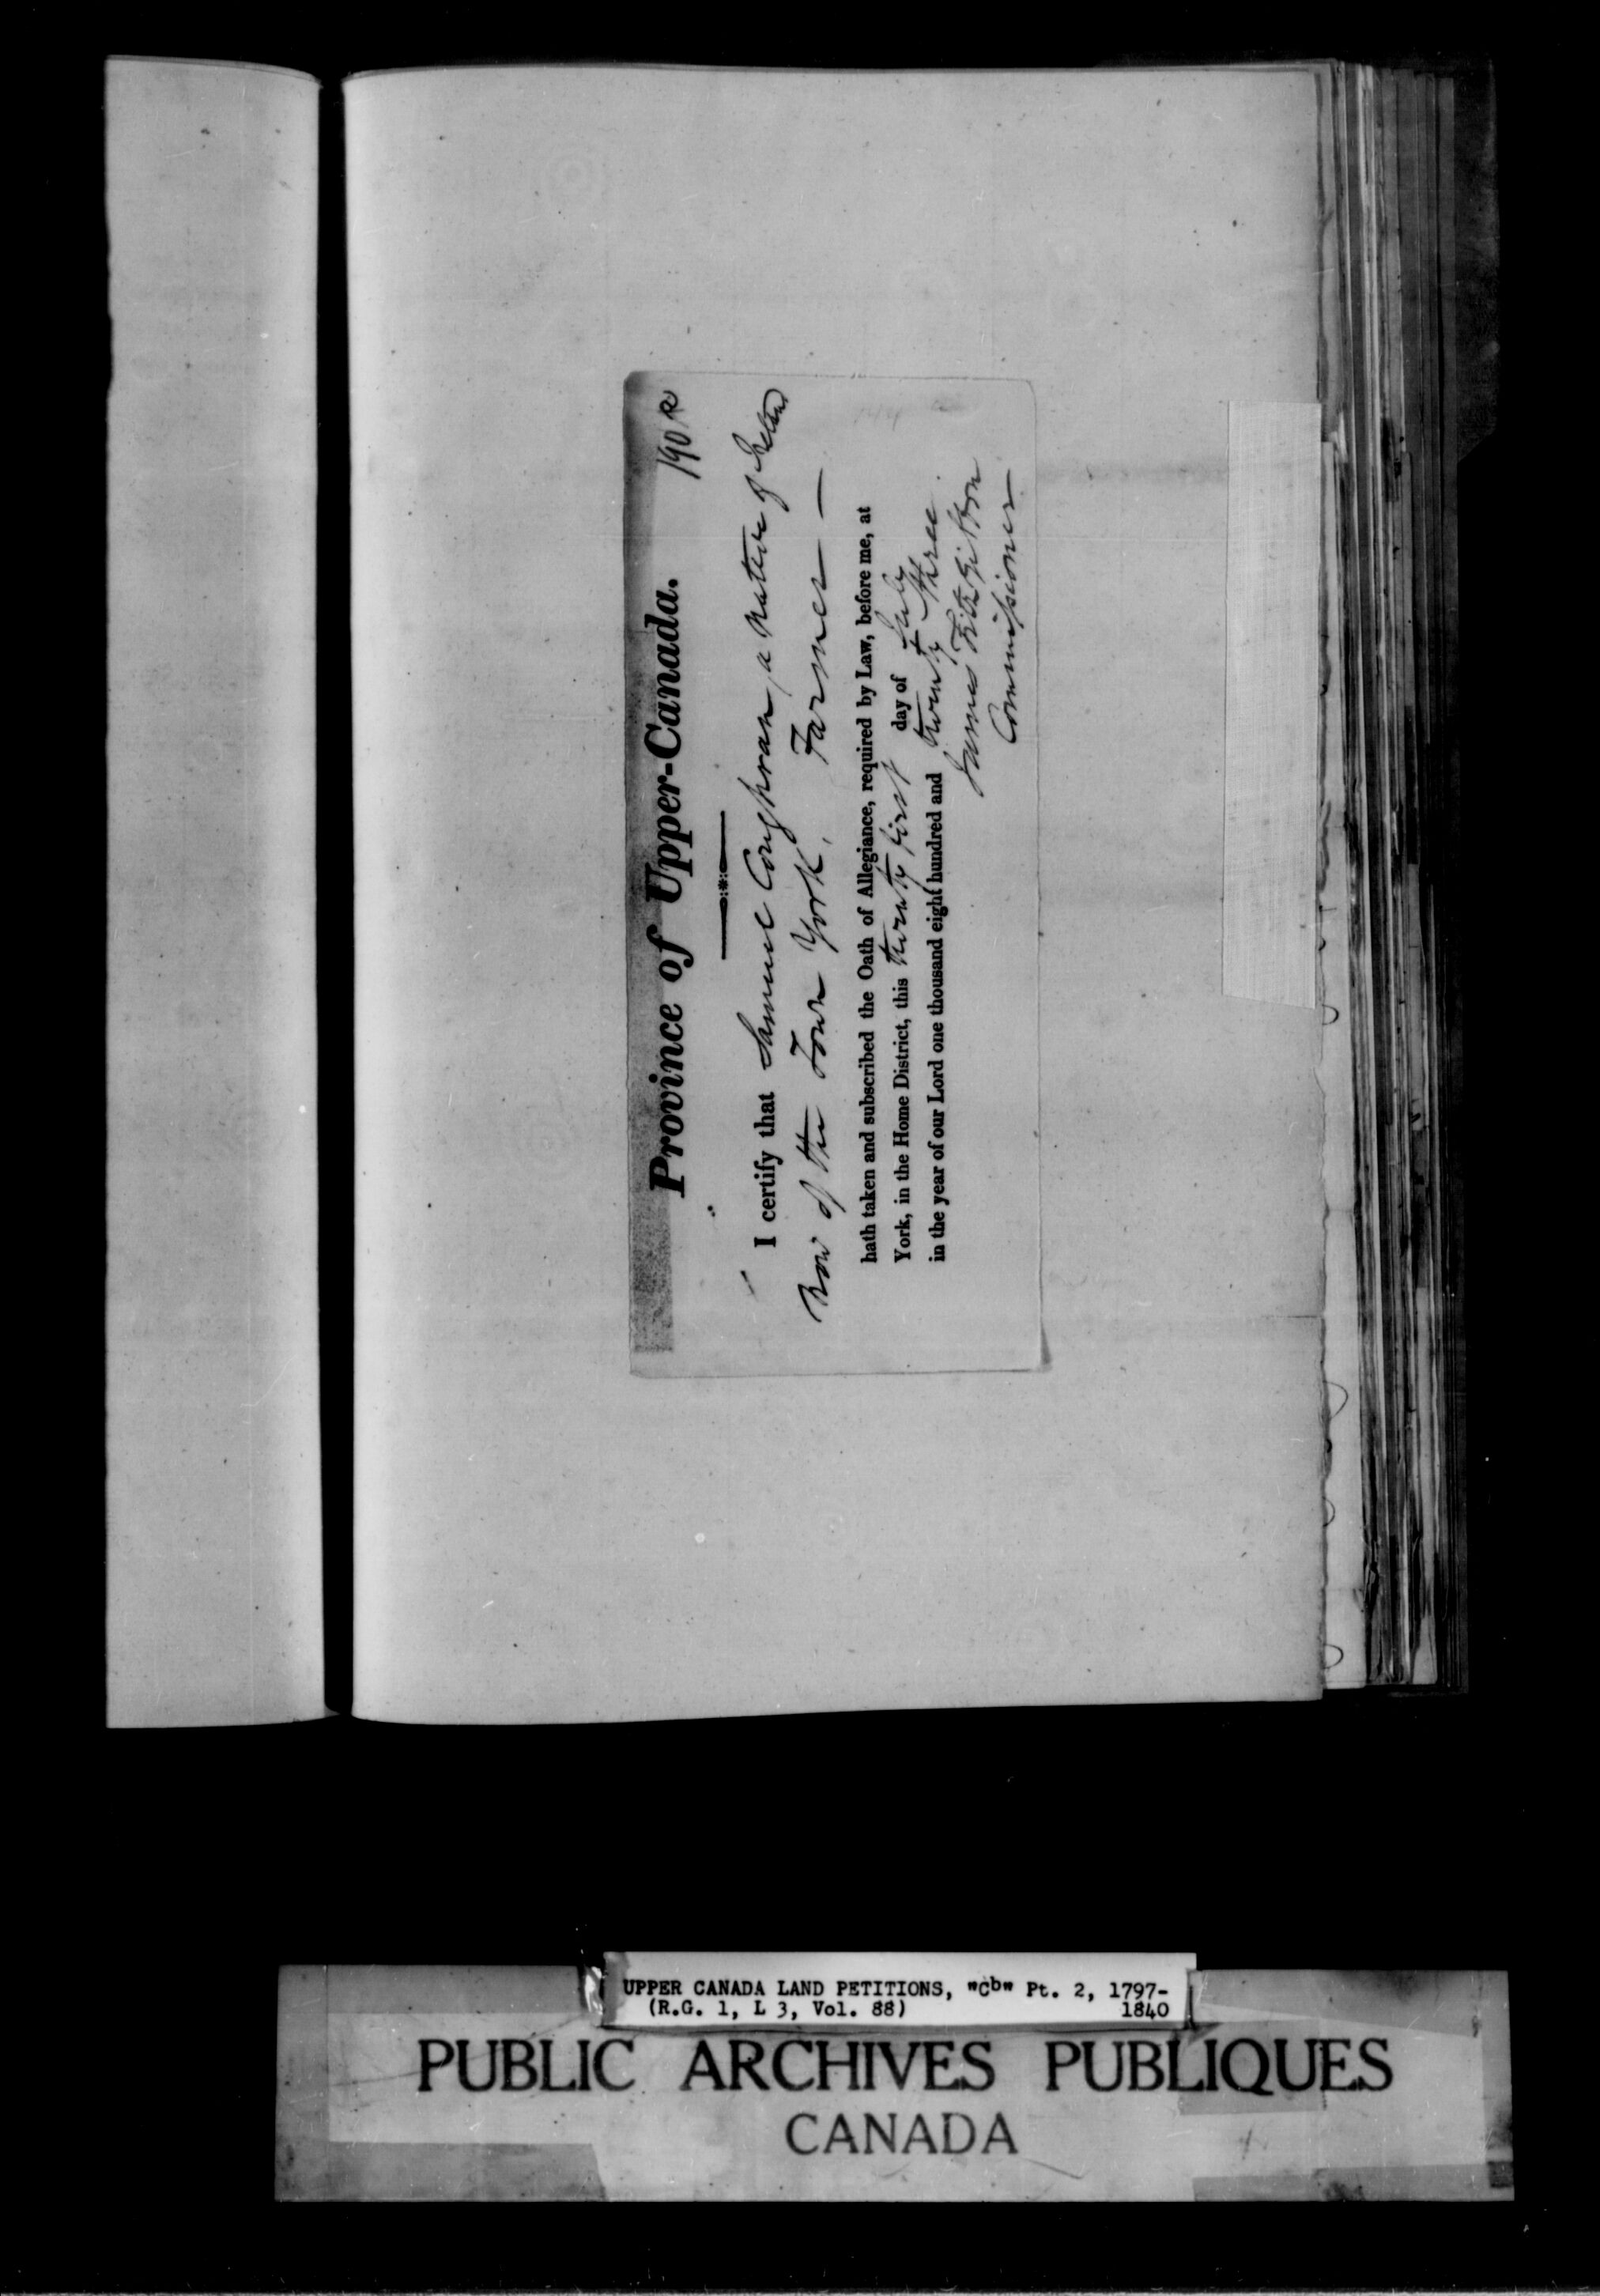 190 R
Province of Upper-Canada.
I certify that Samuel Coughran, a native of Ireland
now of the Town York, Farmer —
hath taken and subscribed the Oath of Allegiance, required by Law, before me, at
York, in the Home District, this twenty first day of July
in the year of our Lord one thousand eight hundred and twenty three.
James FitzGibbon
Commissioner
UPPER CANADA LAND PETITIONS, "Cb" Pt. 2, 1797-
(R.G. 1, L 3, Vol. 88) 1840
PUBLIC ARCHIVES PUBLIQUES
CANADA